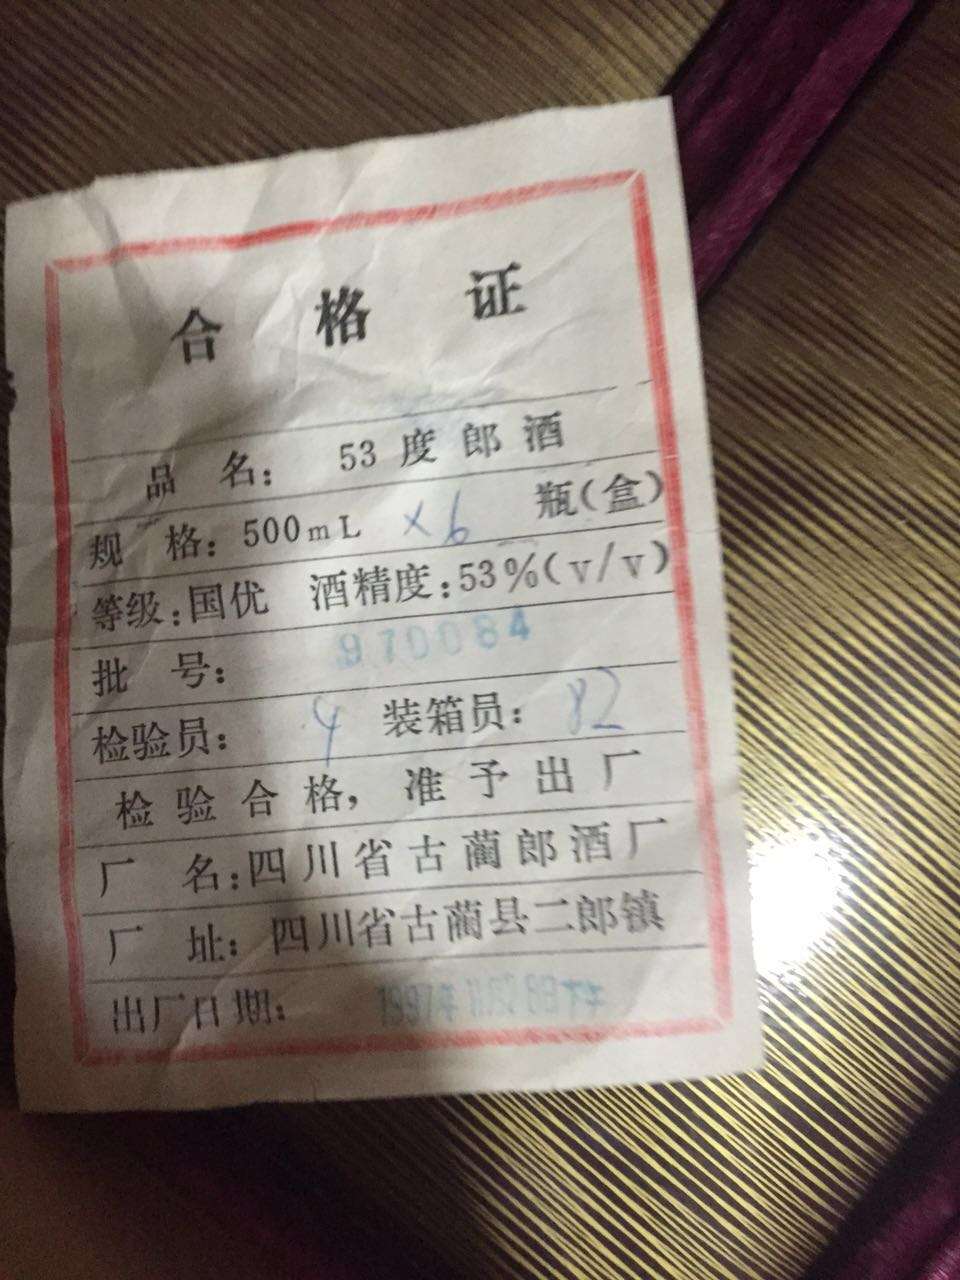 合格证
品名: 53度郎酒
规格: 500mL ×6 瓶(盒)
等级:国优 酒精度:53%(v/v)
批号: 970084
检验员: 4 装箱员: 82
检验合格, 准予出厂
厂名:四川省古蔺郎酒厂
厂址: 四川省古蔺县二郎镇
出厂日期: 1997年11月